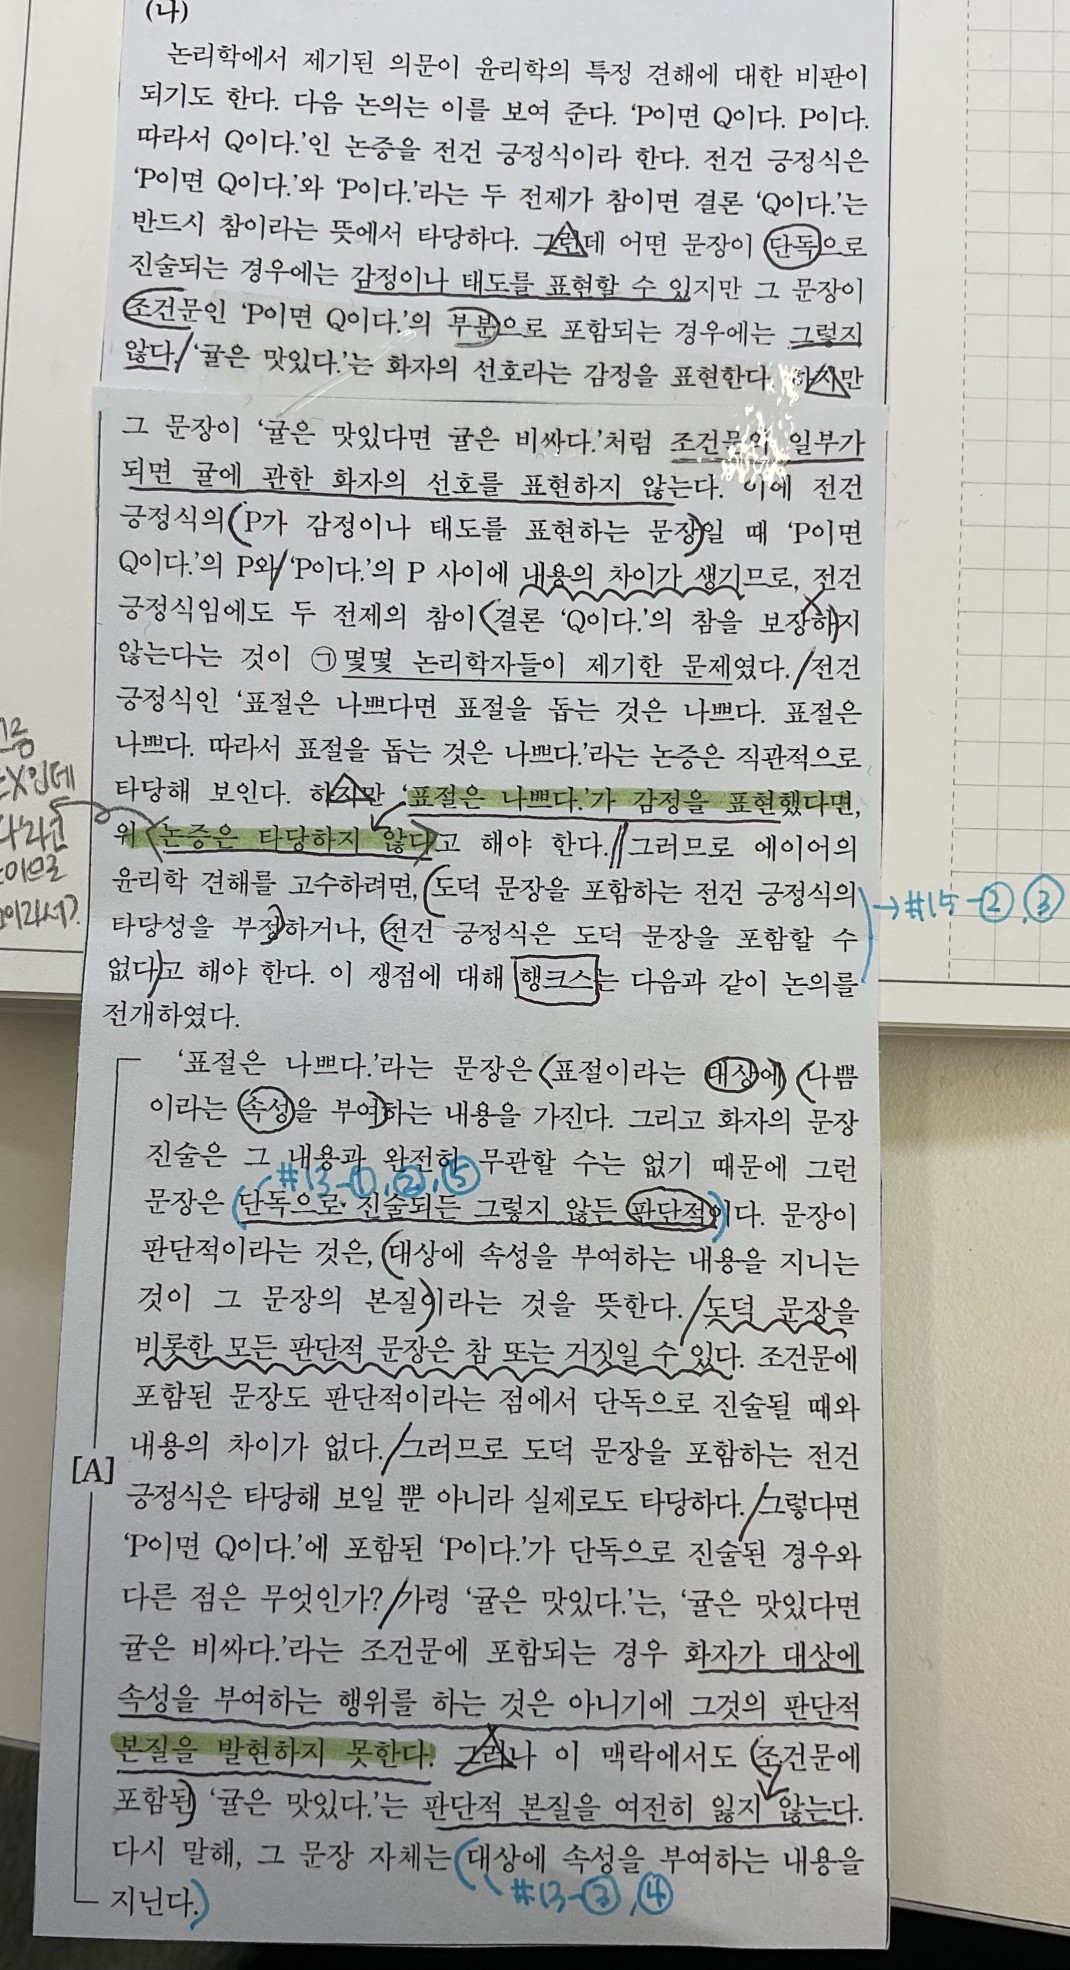 (나)
논리학에서 제기된 의문이 윤리학의 특정 견해에 대한 비판이
되기도 한다. 다음 논의는 이를 보여 준다. ‘P이면 Q이다. P이다.
따라서 Q이다.’인 논증을 전건 긍정식이라 한다. 전건 긍정식은
‘P이면 Q이다.’와 ‘P이다.’라는 두 전제가 참이면 결론 ‘Q이다.’는
반드시 참이라는 뜻에서 타당하다. 그런데 어떤 문장이 단독으로
진술되는 경우에는 감정이나 태도를 표현할 수 있지만 그 문장이
조건문인 ‘P이면 Q이다.’의 부분으로 포함되는 경우에는 그렇지
않다. ‘귤은 맛있다.’는 화자의 선호라는 감정을 표현한다. 하지만
그 문장이 ‘귤은 맛있다면 귤은 비싸다.’처럼 조건문의 일부가
되면 귤에 관한 화자의 선호를 표현하지 않는다. 이에 전건
긍정식의 P가 감정이나 태도를 표현하는 문장일 때 ‘P이면
Q이다.’의 P와 ‘P이다.’의 P 사이에 내용의 차이가 생기므로, 전건
긍정식임에도 두 전제의 참이 결론 ‘Q이다.’의 참을 보장하지
않는다는 것이 ㉠몇몇 논리학자들이 제기한 문제였다. 전건
긍정식인 ‘표절은 나쁘다면 표절을 돕는 것은 나쁘다. 표절은
나쁘다. 따라서 표절을 돕는 것은 나쁘다.’라는 논증은 직관적으로
타당해 보인다. 하지만 ‘표절은 나쁘다.’가 감정을 표현했다면,
위 논증은 타당하지 않다고 해야 한다. 그러므로 에이어의
윤리학 견해를 고수하려면, 도덕 문장을 포함하는 전건 긍정식의
타당성을 부정하거나, 전건 긍정식은 도덕 문장을 포함할 수
→#15-②,③
없다고 해야 한다. 이 쟁점에 대해 행크스는 다음과 같이 논의를
전개하였다.
‘표절은 나쁘다.’라는 문장은 표절이라는 대상에 나쁨
이라는 속성을 부여하는 내용을 가진다. 그리고 화자의 문장
진술은 그 내용과 완전히 무관할 수는 없기 때문에 그런
#13-①,②,⑤
문장은 단독으로 진술되든 그렇지 않든 판단적이다. 문장이
판단적이라는 것은, 대상에 속성을 부여하는 내용을 지니는
것이 그 문장의 본질이라는 것을 뜻한다. 도덕 문장을
비롯한 모든 판단적 문장은 참 또는 거짓일 수 있다. 조건문에
포함된 문장도 판단적이라는 점에서 단독으로 진술될 때와
내용의 차이가 없다. 그러므로 도덕 문장을 포함하는 전건
[A]
긍정식은 타당해 보일 뿐 아니라 실제로도 타당하다. 그렇다면
‘P이면 Q이다.’에 포함된 ‘P이다.’가 단독으로 진술된 경우와
다른 점은 무엇인가? 가령 ‘귤은 맛있다.’는, ‘귤은 맛있다면
귤은 비싸다.’라는 조건문에 포함되는 경우 화자가 대상에
속성을 부여하는 행위를 하는 것은 아니기에 그것의 판단적
본질을 발현하지 못한다. 그러나 이 맥락에서도 조건문에
포함된 ‘귤은 맛있다.’는 판단적 본질을 여전히 잃지 않는다.
다시 말해, 그 문장 자체는 대상에 속성을 부여하는 내용을
#13-③,④
지닌다.